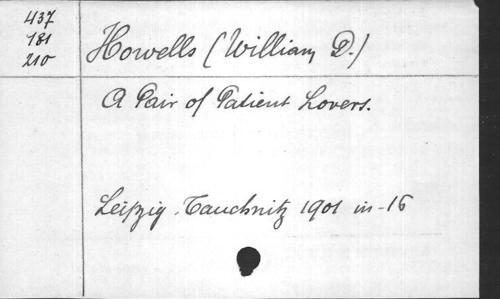 437
181
210
Howells (William D.)
A Pair of Patient Lovers.
Leipzig. Tauchnitz 1901 in-16